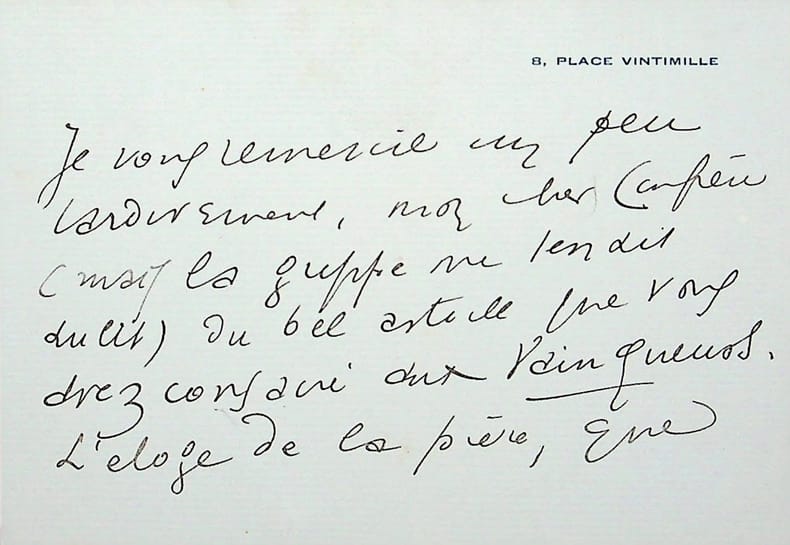 8, PLACE VINTIMILLE
Je vous remercie un peu
tardivement, mon cher Confrère
(mais la grippe me
du lit) du bel article que vous
avez consacré aux Vainqueurs.
L'éloge de la pièce, que